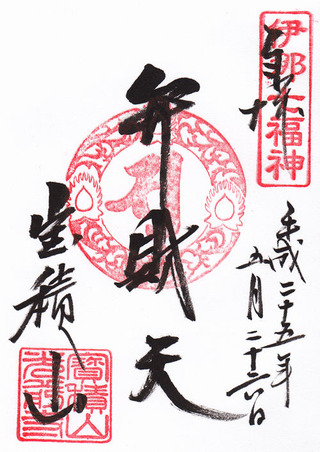 奉拝
伊那七福神
平成二十五年
五月二十六日
弁財天
宝積山
寶積山